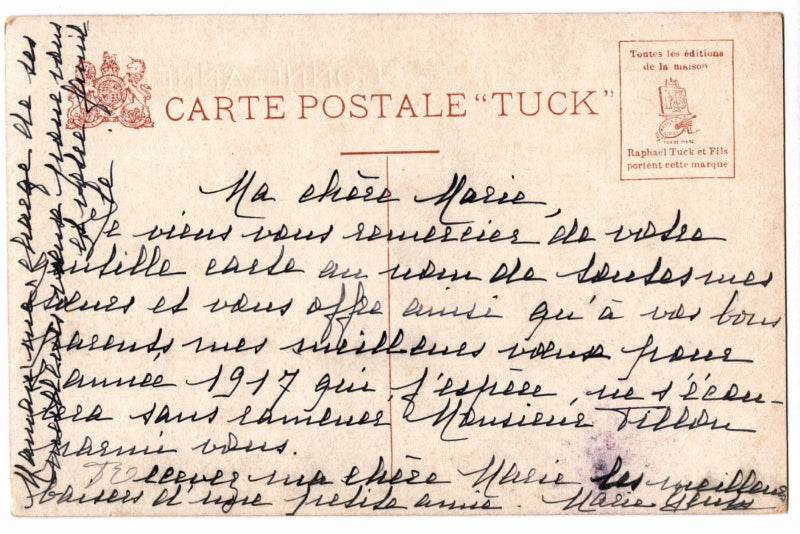 CARTE POSTALE "TUCK"
Toutes les éditions
de la maison
TRADE MARK
Raphaël Tuck et Fils
portent cette marque
Ma chère Marie,
Je viens vous remercier de votre
gentille carte au nom de toutes mes
sœurs et vous offre ainsi qu'à vos bons
parents mes meilleures vœux pour
l'année 1917 qui j'espère, ne s'écou-
lera sans ramener, Monsieur Tillon
parmi vous.
Recevez ma chère Marie les meilleurs
baisers d'une petite amie. Marie
Maman me charge de ses
meilleurs vœux pour vous
et votre famille